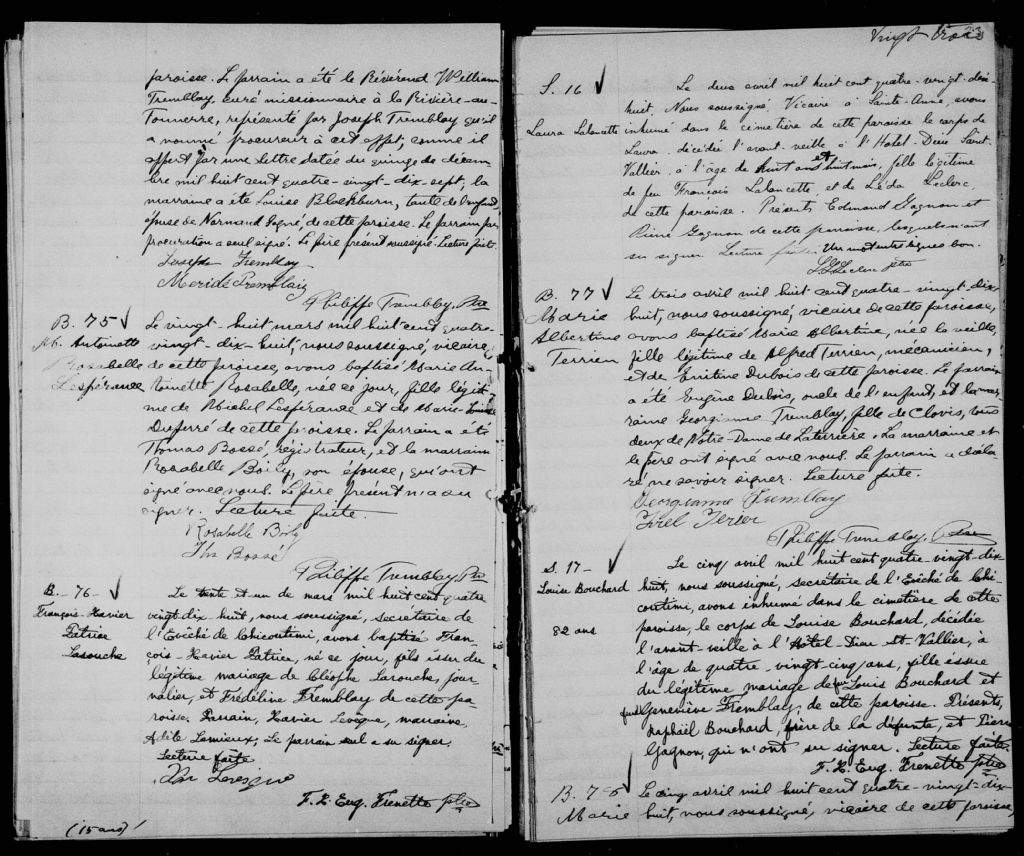 paroisse. Le parrain a été le Révérend William
Tremblay, curé missionnaire à la Rivière-au-
Tonnerre, représenté par Joseph Tremblay qu'il
a nommé procureur à cet effet, comme il
appert par une lettre datée du quinze de décem-
bre mil huit cent quatre-vingt-dix-sept, la
marraine a été Louise Blackburn, tante de l'enfant,
épouse de Normand Gagné, de cette paroisse. Le parrain par
procuration a seul signé. Le père présent a signé. Lecture faite.
Joseph Tremblay
Méridé Tremblay
Philippe Tremblay, Ptre
B. 75
M. Antoinette
Rosabelle
Lespérance
Le vingt-huit mars mil huit cent quatre-
vingt-dix-huit, nous soussigné, vicaire
de cette paroisse, avons baptisé Marie An-
toinette Rosabelle, née ce jour, fille légiti-
me de Michel Lespérance et de Marie-Louise
Duperré de cette paroisse. Le parrain a été
Thomas Bossé, régistrateur, et la marraine
Rosabelle Boily, son épouse, qui ont
signé avec nous. Le père présent n'a su
signer. Lecture faite.
Rosabelle Boily
Ths Bossé
Philippe Tremblay Ptre
B. 76
François-Xavier
Patrice
Larouche
Le trente et un de mars mil huit cent quatre
vingt dix huit, nous soussigné, secrétaire de
l'Evêché de Chicoutimi, avons baptisé Fran-
çois-Xavier Patrice, né ce jour, fils issu du
légitime mariage de Cléophe Larouche, jour-
nalier, et Frédéline Tremblay de cette pa-
roisse. Parrain, Xavier Levêque, marraine,
Adèle Lemieux; Le parrain seul a su signer.
Lecture faite.
F. X. Eug. Frenette ptre
(15 ans)
Vingt trois
S. 16
Laura Lalancette
Le deux avril mil huit cent quatre-vingt-dix-
huit, Nous soussigné Vicaire à Sainte-Anne, avons
inhumé dans le cimetière de cette paroisse le corps de
Laura, décédée l'avant-veille à l'Hotel-Dieu Saint-
Vallier, à l'âge de huit ans et huit mois, fille légitime
de feu François Lalancette, et de Léda Leclerc,
de cette paroisse. Présents Edmond Gagnon et
Pierre Gagnon de cette paroisse, lesquels n'ont
su signer. Lecture faite. Un mot entre lignes bon.
Leclerc ptre
B. 77
Marie
Albertine
Terrien
Le trois avril mil huit cent quatre-vingt-dix
huit, nous soussigné, vicaire de cette paroisse,
avons baptisé Marie Albertine, née la veille,
fille légitime de Alfred Terrien, mécanicien,
et de Enitine Dubois de cette paroisse. Le parrain
a été Eugène Dubois, oncle de l'enfant, et la mar-
raine Georgianne Tremblay, fille de Clovis, tous
deux de Notre-Dame de Laterrière. La marraine et
le père ont signé avec nous. Le parrain a décla-
ré ne savoir signer. Lecture faite.
Georgianne Tremblay
Philippe Tremblay, Ptre
S. 17
Louise Bouchard
82 ans
Le cinq avril mil huit cent quatre-vingt-dix
huit, nous soussigné, secrétaire de l'Evêché de Chi-
coutimi, avons inhumé dans le cimetière de cette
paroisse, le corps de Louise Bouchard, décédée
l'avant-veille à l'Hôtel-Dieu St-Vallier, à
l'âge de quatre-vingt-cinq ans, fille issue
du légitime mariage de feu Louis Bouchard et
feue Geneviève Tremblay, de cette paroisse. Présents,
Raphaël Bouchard, frère de la défunte, et Pierre
Gagnon, qui n'ont su signer. Lecture faite.
F. X. Eug. Frenette ptre
B. 78
Marie
Le cinq avril mil huit cent quatre-vingt-dix
huit, nous soussigné, vicaire de cette paroisse,